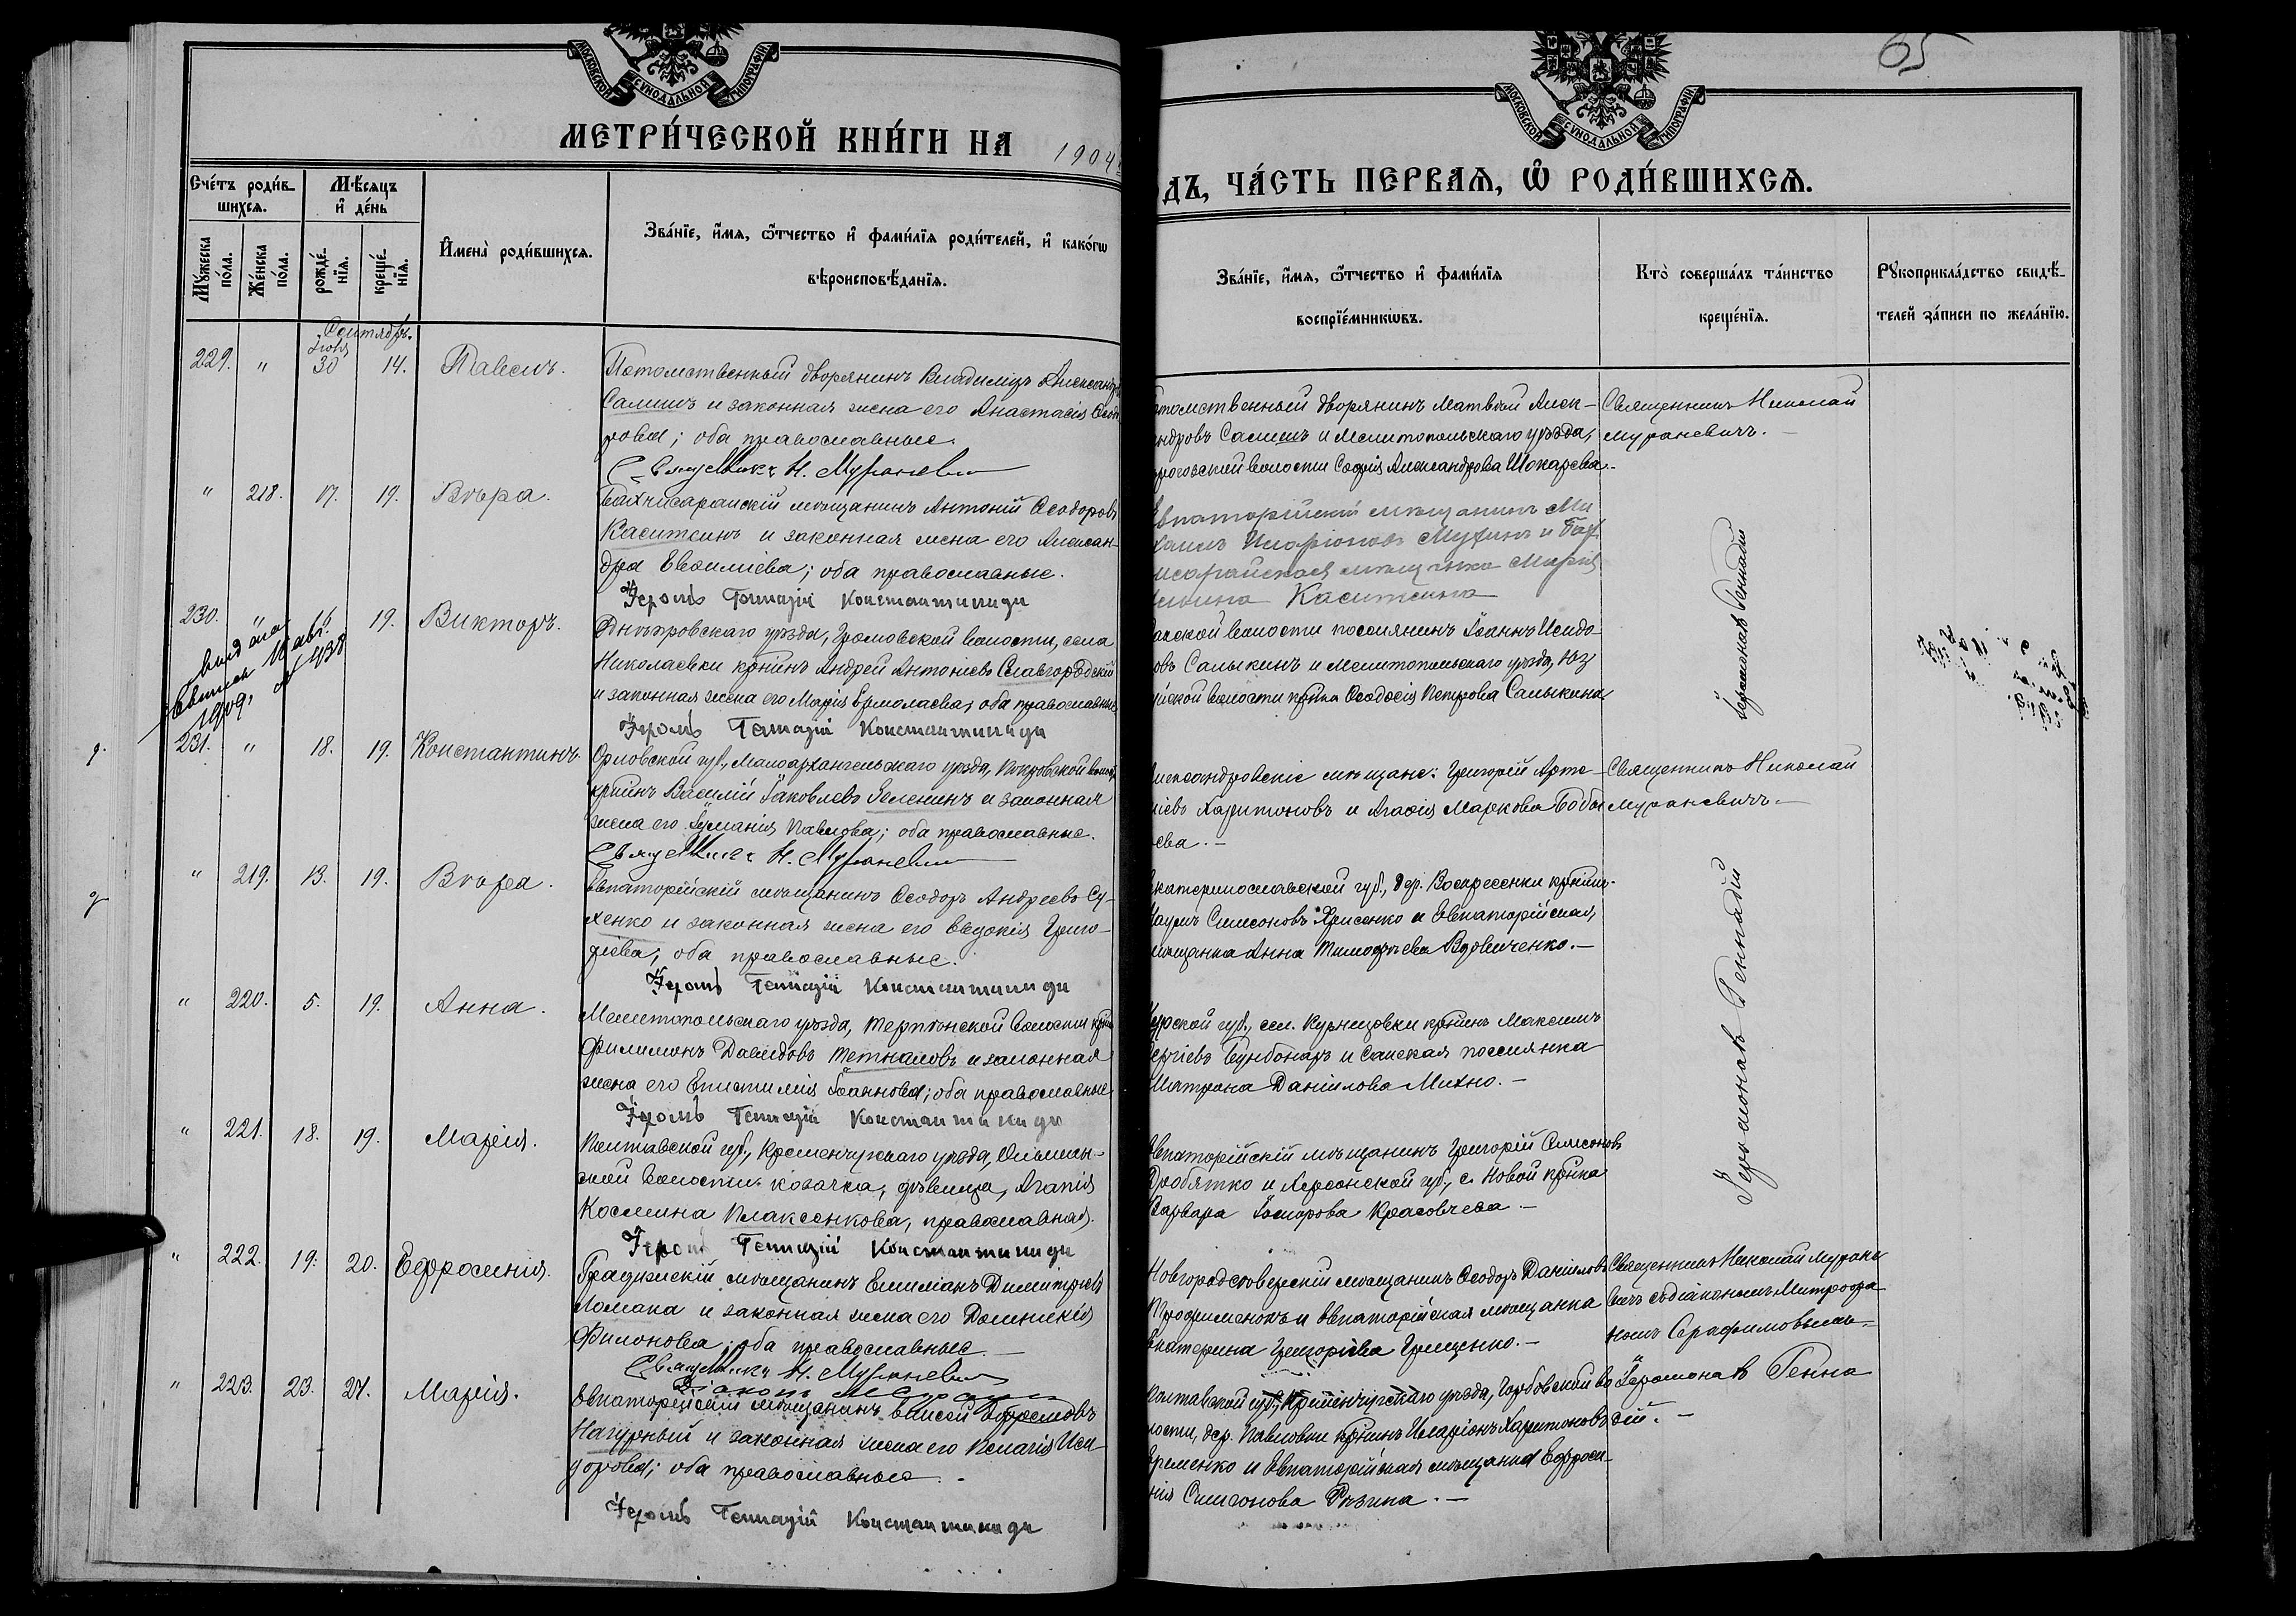 65
МОСКОВСКОЙ СѴНОДАЛЬНОЙ ТИПОГРАФІИ
МОСКОВСКОЙ СѴНОДАЛЬНОЙ ТИПОГРАФІИ
МЕТРИ́ЧЕСКОЙ КНИ́ГИ НА 1904
ДЪ, ЧА́СТЬ ПЕРВАѦ, Ѡ҆ РОДИ́ВШИХСѦ.
Сче́тъ роди́в-
шихсѧ.
Мѣ́сѧцъ
и҆ де́нь
Мꙋ́жеска
по́ла.
Же́нска
по́ла.
рожде́-
нїѧ.
креще́-
нїѧ.
И҆мена̀ роди́вшихсѧ.
Зва́нїе, и҆́мѧ, ѻ҆́тчество и҆ фами́лїѧ роди́телей, и҆ како́гѡ
вѣроисповѣ́данїѧ.
Зва́нїе, и҆́мѧ, ѻ҆́тчество и҆ фами́лїѧ
воспрїе́мникѡвъ.
Кто̀ соверша́лъ та́инство
креще́нїѧ.
Рꙋкоприкла́дство свидѣ́-
телей за́писи по жела́нїю.
Сентябрь.
Іюля
229. " 30 14. Павелъ.
Потомственный дворянинъ Владиміръ Александр
Салишъ и законная жена его Анастасія
рова; оба православные.
Священникъ Н. Мураневич
томственный дворянинъ Матвѣй Алек-
ндровъ Салишъ и Мелитопольскаго уѣзда,
роговской волости Софія Александрова Шокарева.
Священникъ Николай
Мураневичъ.
" 218. 17. 19. Вѣра.
Бахчисарайскій мѣщанинъ Антоній Ѳеодоровъ
Каситскинъ и законная жена его Алексан-
дра Евѳиміева; оба православные.
Іером Геннадій Константиниди
Евпаторійскій мѣщанинъ Ми
хаилъ Иларіоновъ Мухинъ и Бах
исарайская мѣщанка Марія
Іеромонахъ Геннадій
230. " 16. 19. Викторъ.
1909, № 438
Днѣпровскаго уѣзда, Громовской волости, села
Николаевки кр-нинъ Андрей Антоніевъ Славгородскій
и законная жена его Марія Ермолаева, оба православные
Іером Геннадій Константиниди
акской волости поселянинъ Іоаннъ Исидо-
овъ Салыкинъ и Мелитопольскаго уѣзда,
ской волости кр-нка Ѳеодосія Петрова Салыкина
231. " 18. 19. Константинъ.
Орловской губ., Малоархангельскаго уѣзда, Покровской волост
кр-нинъ Василій Іаковлевъ Зеленинъ и законная
жена его Іуліанія Павлова; оба православные.
Священникъ Н. Мураневич
лександровскіе мѣщане: Григорій Арте-
іевъ Харитоновъ и Агаѳія Маркова Бобы
ева.
Священникъ Николай
Мураневичъ.
" 219. 13. 19. Вѣра.
Евпаторійскій мѣщанинъ Ѳеодоръ Андреевъ Су-
хенко и законная жена его Евдокія Григо-
рієва, оба православные.
Іером Геннадій Константиниди
катеринославской губ., дер. Воскресенки кр-нинъ
Наумъ Симеоновъ Хрисенко и Евпаторійская,
мѣщанка Анна Тимоѳеева Вдовиченко.
Іеромонахъ Геннадій
" 220. 5. 19. Анна.
Мелитопольскаго уѣзда, Терпѣнской волости кр-нинъ
Филимонъ Давидовъ Тетналовъ и законная
жена его Епистимія Іоаннова; оба православные.
Іером Геннадій Константиниди
Курской губ., сел. Курнецовки кр-нинъ Максимъ
ергіевъ Бунбонаръ и Сакская поселянка
Матрона Даніилова Михно.
" 221. 18. 19. Марія.
Полтавской губ., Кременчугскаго уѣзда,
ской волости козачка, дѣвица, Агапія
Космина Плаксенкова, православная.
Іером Геннадій Константиниди
Евпаторійскій мѣщанинъ Григорій Симеоновъ
Дробятко и Херсонской губ., с. Новой кр-нка
Варвара Красовчева.
" 222. 19. 20. Ефросинія.
Градижскій мѣщанинъ Емиліанъ Димитріевъ
Ломака и законная жена его Домникія
Филонова; оба православные.
Священникъ Н. Мураневич
Діаконъ
Новгородсѣверскій мѣщанинъ Ѳеодоръ Даніиловъ
Трофименокъ и Евпаторійская мѣщанка
Екатерина Григоріева Грищенко.
Священникъ Николай Муране
вичъ съ діакономъ Митрофа
номъ Серафимовымъ.
" 223. 23. 24. Марія.
Евпаторійскій мѣщанинъ Елисей Ефремовъ
Нагурный и законная жена его Пелагія Иси-
дорова; оба православные.
Іером Геннадій Константиниди
Полтавской губ., Кременчугскаго уѣзда, Горбовской во
лости, дер. Павловки кр-нинъ Иларіонъ Харитоновъ
Еременко и Евпаторійская мѣщанка Ефроси-
нія Симеонова Рѣзина.
Іеромонахъ Генна
дій.